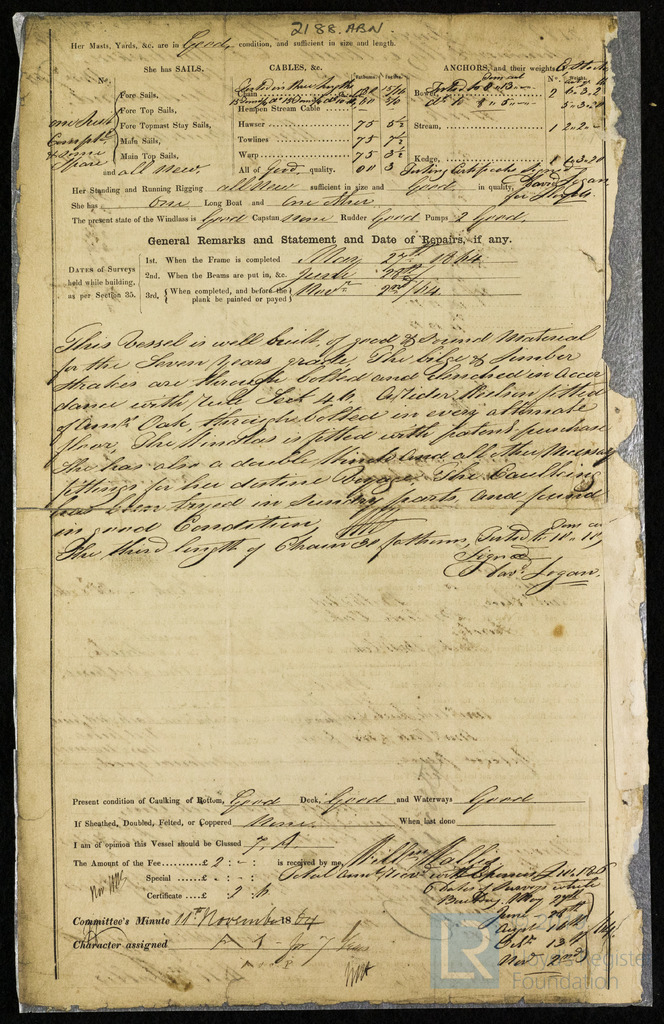 2188 ABN
Her Masts, Yards, &c. are in Good condition, and sufficient in size and length.
She has SAILS. CABLES, &c. Fathoms. Inches. ANCHORS, and their weights
No. No. Weights.
Fore Sails, Chain 15/16 Bower, 2 6.3.2
Fore Top Sails, Hempen Stream Cable 5.3.20
one Suit Fore Topmast Stay Sails, Hawser 75 5½ Stream, 1 2.2.
Compt. Main Sails, Towlines 75 7½
& some Spare Main Top Sails, Warp 75 3½ Kedge,
and all New. All of Good quality. Testing Certificate Signed
Her Standing and Running Rigging all New sufficient in size and Good in quality, David Logan
She has one Long Boat and one other.
The present state of the Windlass is Good Capstan None Rudder Good Pumps 2 Good.
General Remarks and Statement and Date of Repairs, if any.
DATES of Surveys held while building, as per Section 35.
1st. When the Frame is completed May 27th 1864
2nd. When the Beams are put in, &c. June 28th
3rd, When completed, and before the plank be painted or payed Novr. 2nd /64
This Vessel is well built, of good & Sound Material
for the Seven Years grade. The bilge & Limber
Strakes are through bolted and Clinched in Accor
dance with rule Sect 46. A Rider Keelson fitted
of Amn. Oak, through bolted in every alternate
floor, The Windlas is fitted with patent purchase
She has also a double and all other Necessary
fittings for her destine Voyage. The Caulking
has been tryed in Sundry parts, and found
in good Condition,
The third length of Chain 30 fathoms, Tested to 18..11
Signed
Davd. Logan.
Present condition of Caulking of Bottom, Good Deck, Good and Waterways Good
If Sheathed, Doubled, Felted, or Coppered None. When last done
I am of opinion this Vessel should be Classed 7 A
The Amount of the Fee £ 2 : - : is received by me, William Wallis
Special £ - : - :
Certificate £ 2 . 6
6 Dates of Surveys while
Building. May 27th
June - 28th
Augt 16th /64
Octr. 13th
Novr. 2nd
Committee's Minute 11th November 1864
Character assigned A 1 - for 7 Years
LR
Lloyd's Register
Foundation